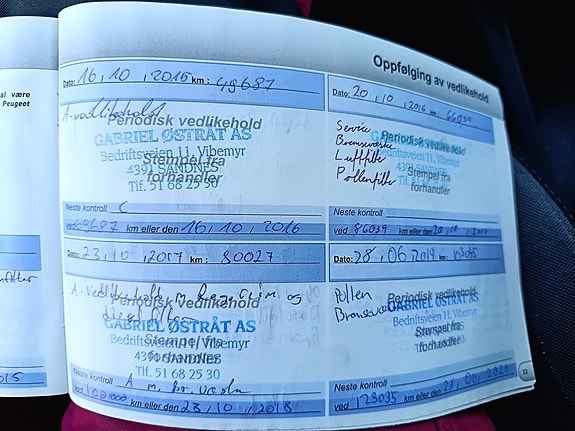 al være
Peugeot
Oppfølging av vedlikehold
Dato: 16, 10, 2015 km: 49687
A-vedlikehold
Periodisk vedlikehold
GABRIEL ØSTRÅT AS
Bedriftsveien 11, Vibemyr
Stempel fra
4391 SANDNES
forhandler
Tlf. 51 68 25 30
Neste kontroll
ved km eller den 16, 10, 2016
Dato: 20, 10, 2016 km:
Service
Bremsevæske
Luftfilter
Pollenfilter
Periodisk vedlikehold
GABRIEL ØSTRÅT AS
Bedriftsveien 11, Vibemyr
Stempel fra
4391 SANDNES
forhandler
Neste kontroll
ved 86039 km eller den 20, 10,
Dato: 23, 10, 2017 km: 80027
A-vedlikehold
Periodisk vedlikehold
GABRIEL ØSTRÅT AS
Bedriftsveien 11, Vibemyr
Stempel fra
4391 SANDNES
forhandler
Tlf. 51 68 25 30
Neste kontroll A m.
ved km eller den 23, 10, 2018
Dato: 28, 06, 2019 km:
Pollen
Periodisk vedlikehold
GABRIEL ØSTRÅT AS
Bedriftsveien 11, Vibemyr
Stempel fra
forhandler
Neste kontroll
ved 123035 km eller den 2020